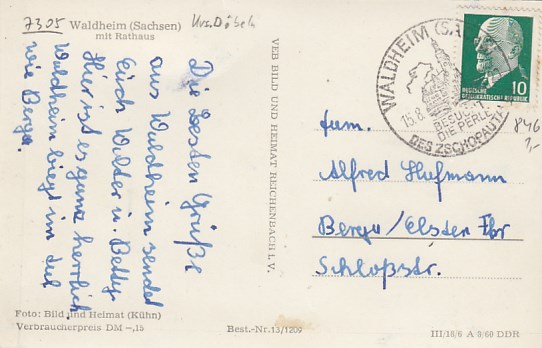 7305 Waldheim (Sachsen) Krs. Döbeln
mit Rathaus
Die besten Grüße
aus Waldheim sendet
Euch Walter u. Betty.
Hier ist es ganz herrlich
Waldheim liegt im Tal
wie Berga.
Foto: Bild und Heimat (Kühn)
Verbraucherpreis DM –,15
VEB BILD UND HEIMAT REICHENBACH I. V.
Best.-Nr. 13/1209
WALDHEIM (SA
15.8.
BESUCHT
DIE PERLE
DES ZSCHOPAUTA
DEUTSCHE
DEMOKRATISCHE REPUBLIK
10
846
1,-
Fam.
Alfred Hufmann
Berga/Elster Thr
Schloßstr.
III/18/6 A 3/60 DDR